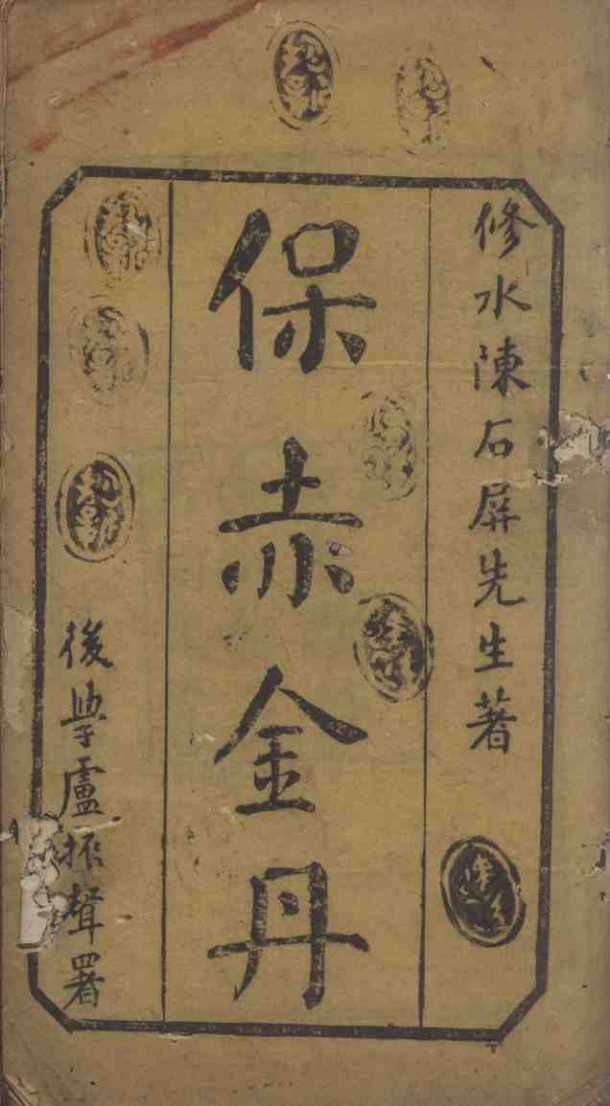 修水陳石屏先生著
保赤金丹
後學盧振聲署